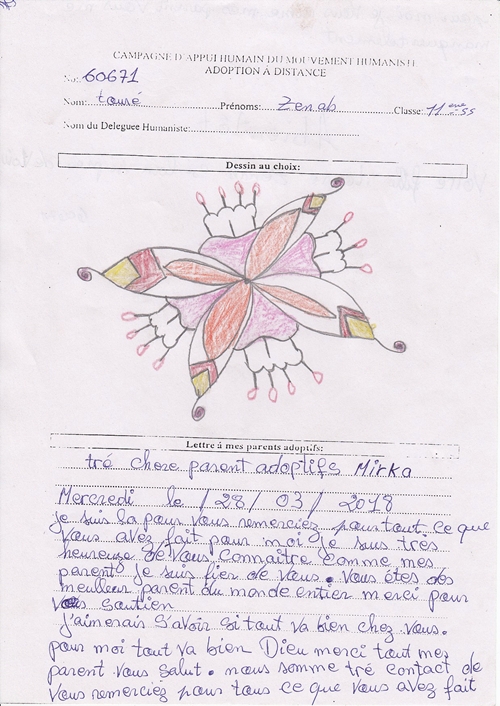 CAMPAGNE D'APPUI HUMAIN DU MOUVEMENT HUMANISTE
ADOPTION À DISTANCE
No: 60671
Nom: touré Prénoms: Zenab Classe: 11 eme SS
Nom du Deleguee Humaniste:
Dessin au choix:
Lettre á mes parents adoptifs:
tré chere parent adoptifs Mirka
Mercredi le / 28 / 03 / 2018
je suis la pour vous remerciez pour tout ce que
vous avez fait pour moi je suis très
heureuse de vous connaitre comme mes
parent je suis fier de vous. vous étes des
meilleur parent du monde entier merci pour
vos soutien
j'aimerais s'avoir si tout va bien chez vous.
pour moi tout va bien Dieu merci tout mes
parent vous salut. nous somme tré contact de
vous remerciez pour tous ce que vous avez fait